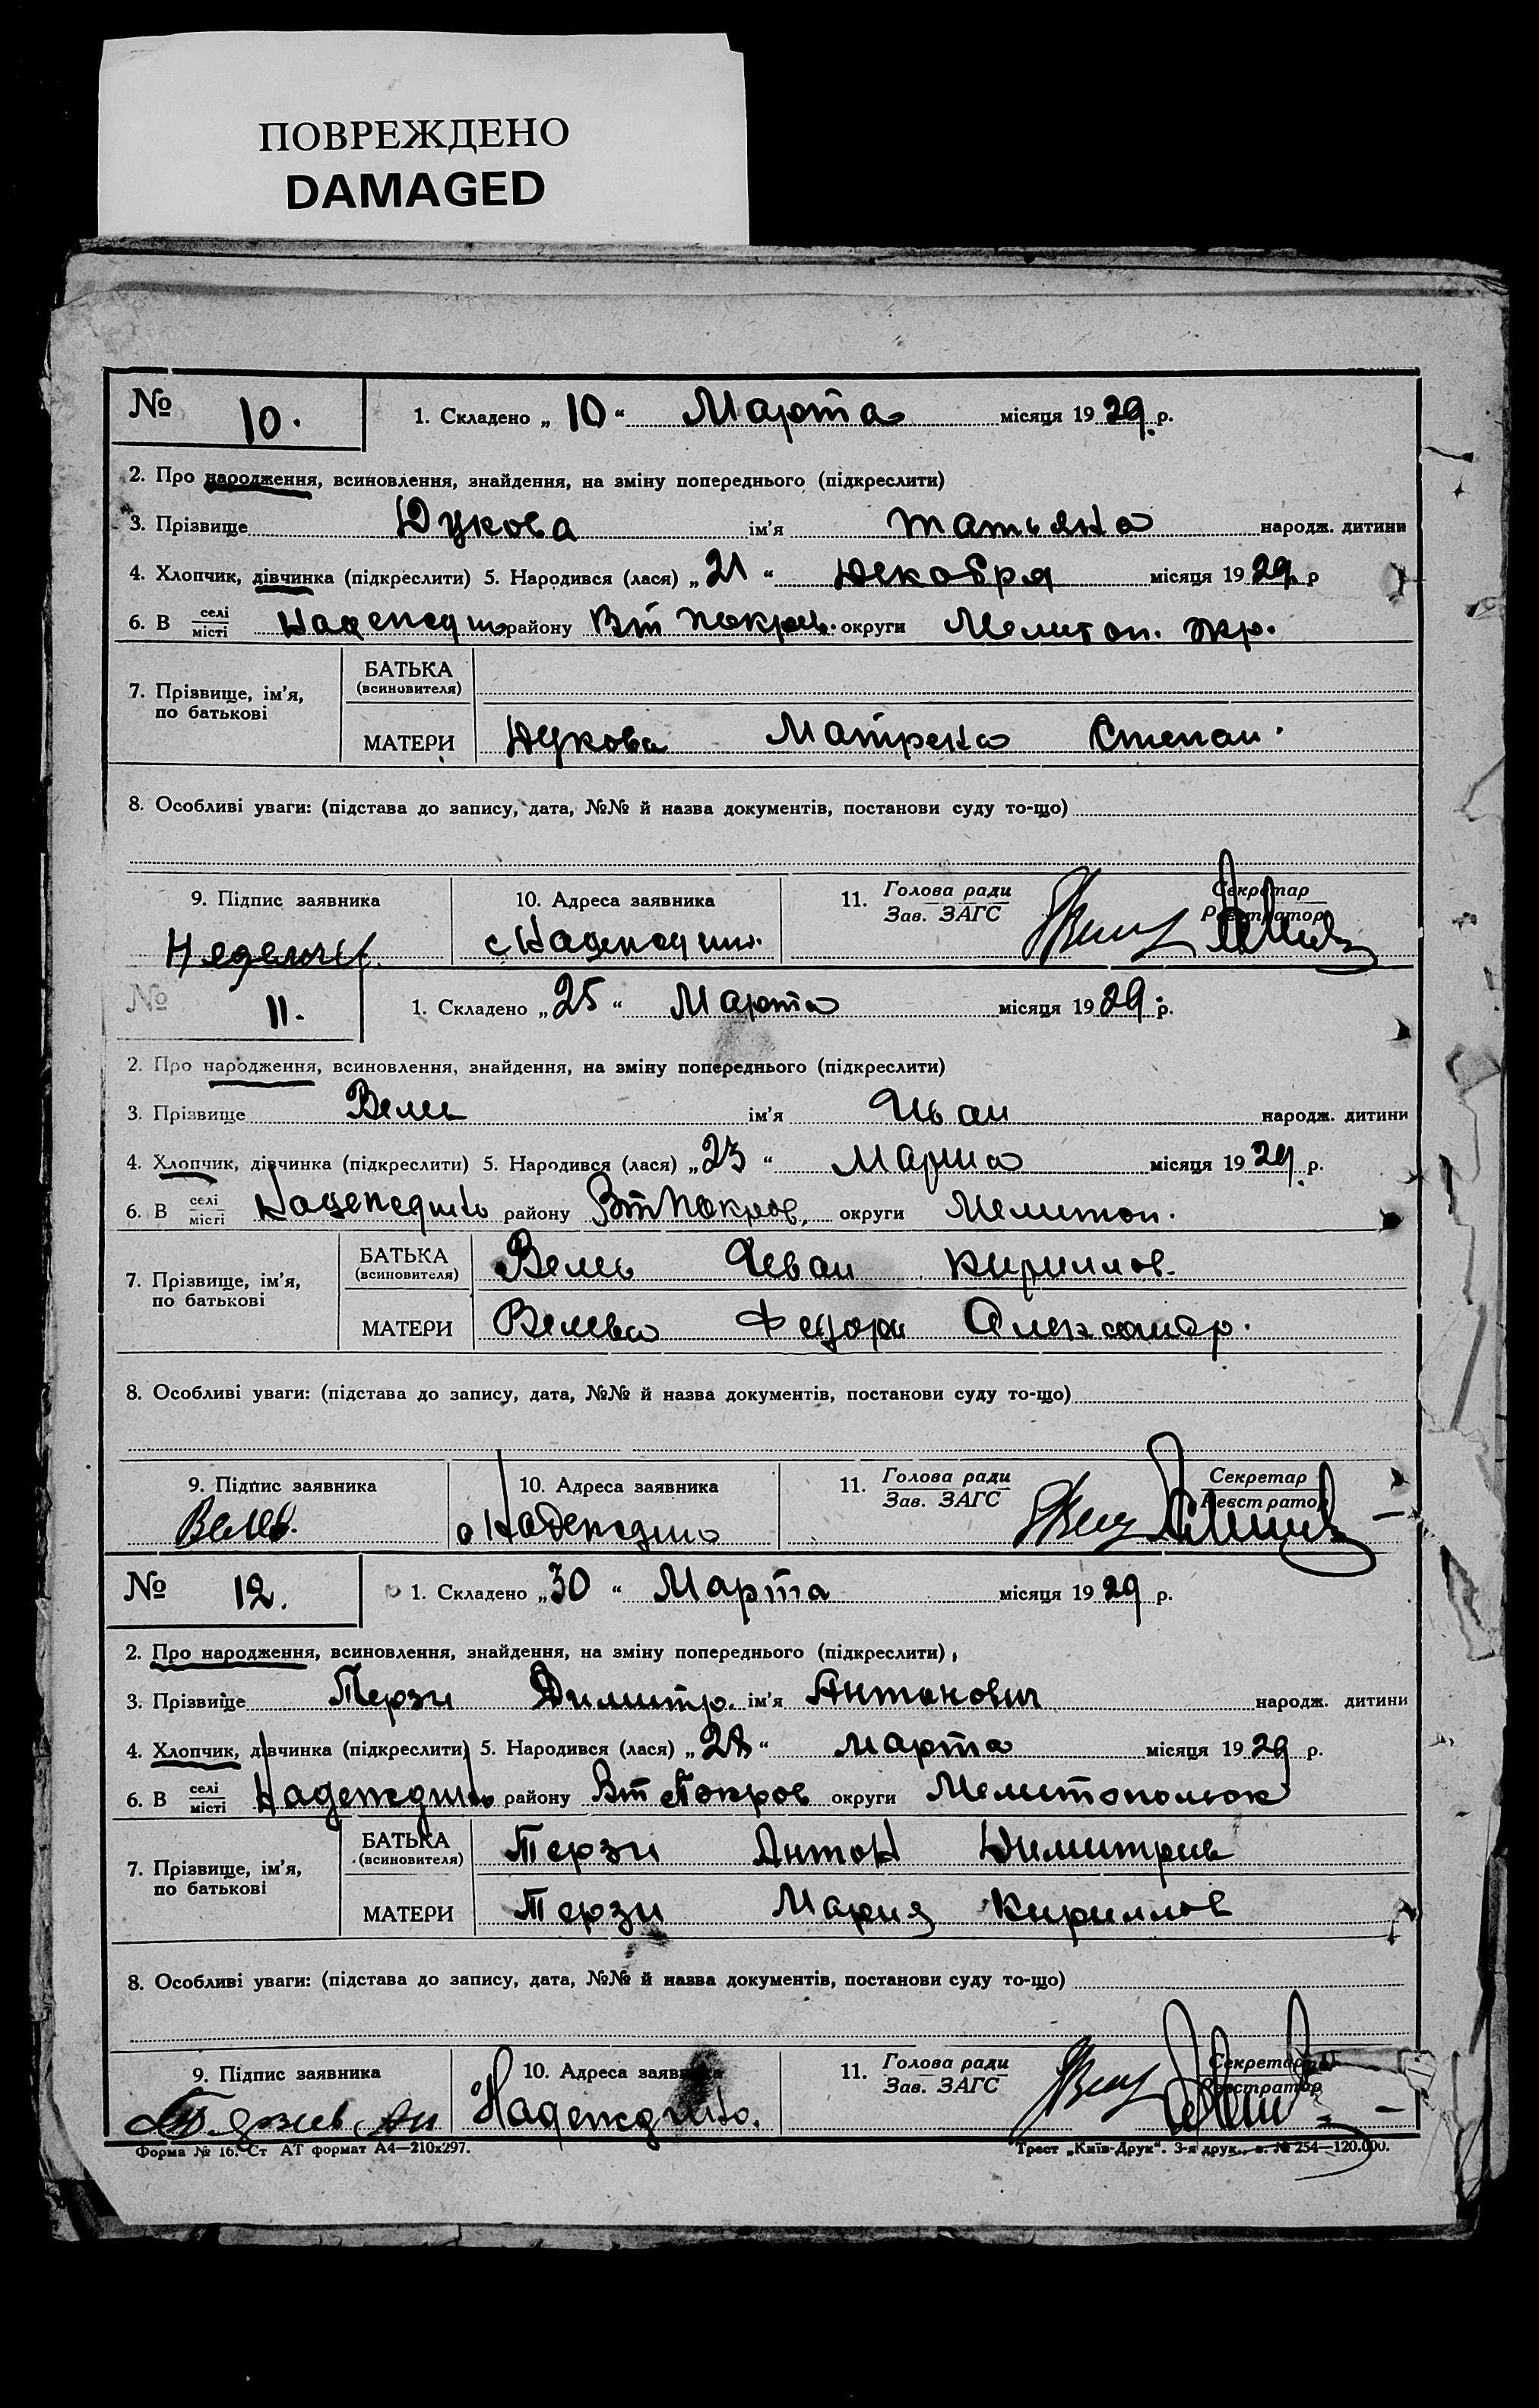 ПОВРЕЖДЕНО
DAMAGED
№ 10. 1. Складено „10“ Марта місяця 1929 р.
2. Про народження, всиновлення, знайдення, на зміну попереднього (підкреслити)
3. Прізвище Дукова ім'я Татьяна народж. дитини
4. Хлопчик, дівчинка (підкреслити) 5. Народився (лася) „21“ Декабря місяця 1929 р
6. В селі місті району Вт Покров. округи Мелитоп. окр.
7. Прізвище, ім'я, по батькові
БАТЬКА (всиновителя)
МАТЕРИ Дукова Матрена Степан.
8. Особливі уваги: (підстава до запису, дата, №№ й назва документів, постанови суду то-що)
9. Підпис заявника 10. Адреса заявника 11. Голова ради Зав. ЗАГС Секретар Реєстратор
№ 11. 1. Складено „25“ Марта місяця 1929 р.
2. Про народження, всиновлення, знайдення, на зміну попереднього (підкреслити)
3. Прізвище ім'я Иван народж. дитини
4. Хлопчик, дівчинка (підкреслити) 5. Народився (лася) „23“ Марта місяця 1929 р.
6. В селі місті Надеждино району Вт Покров. округи Мелитоп.
7. Прізвище, ім'я, по батькові
БАТЬКА (всиновителя) Велев Иван Кириллов.
МАТЕРИ Велева Федора Александр.
8. Особливі уваги: (підстава до запису, дата, №№ й назва документів, постанови суду то-що)
9. Підпис заявника 10. Адреса заявника 11. Голова ради Зав. ЗАГС Секретар Реєстратор
Велев. с Надеждино
№ 12. 1. Складено „30“ Марта місяця 1929 р.
2. Про народження, всиновлення, знайдення, на зміну попереднього (підкреслити)
3. Прізвище Терзи Димитр. ім'я Антонович народж. дитини
4. Хлопчик, дівчинка (підкреслити) 5. Народився (лася) „28“ Марта місяця 1929 р.
6. В селі місті Надеждино району Вт Покров округи Мелитопольск
7. Прізвище, ім'я, по батькові
БАТЬКА (всиновителя) Терзи Антон Димитрив
МАТЕРИ Терзи Мария Кириллов
8. Особливі уваги: (підстава до запису, дата, №№ й назва документів, постанови суду то-що)
9. Підпис заявника 10. Адреса заявника 11. Голова ради Зав. ЗАГС Секретар Реєстратор
Надеждино.
Форма № 16. Ст АТ формат А4—210х297. Трест „Київ-Друк“. 3-я друк., з. № 254—120.000.